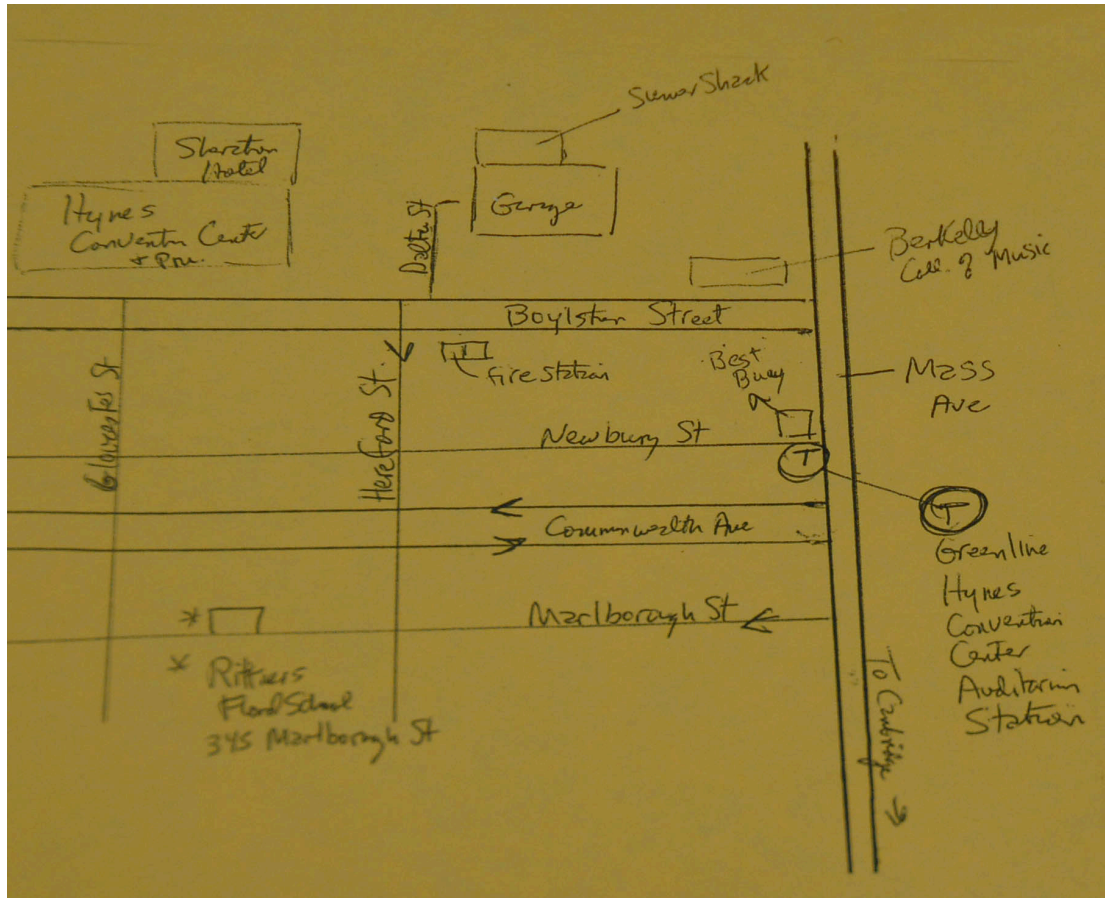 Sumor Shack
Sheraton
Hotel
Hynes
Conventn Center
+ Pru.
Garage
Dalton St
Berkelly
Coll. of Music
Boylston Street
Fire Station
Best
Buy
Mass
Ave
Gloucester St
Hereford St.
Newbury St
T
T
Commonwealth Ave
Greenline
Hynes
Convention
Center
Auditorium
Station
Marlborough St
*
* Rittners
Floral School
345 Marlborough St
To Cambridge